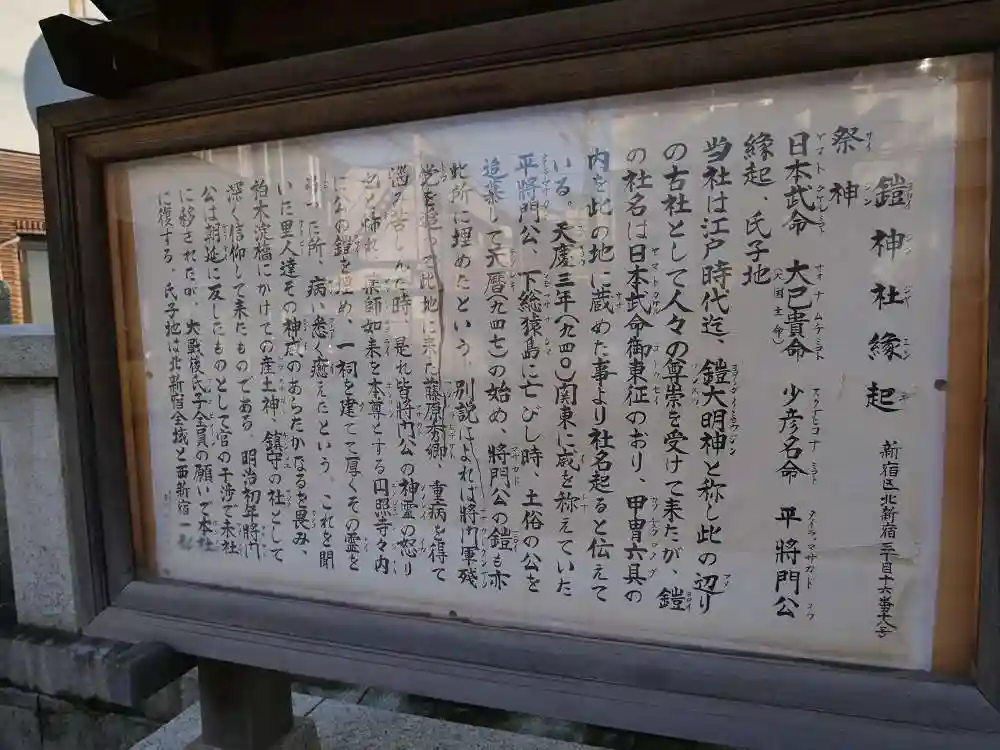 鎧神社縁起
新宿区北新宿三丁目十六番十八号
祭神
日本武命 大己貴命(大国主命) 少彦名命 平將門公
縁起、氏子地
当社は江戸時代迄、鎧大明神と称し此の辺り
の古社として人々の尊崇を受けて来たが、鎧
の社名は日本武命御東征のおり、甲冑六具の
内を此の地に蔵めた事より社名起ると伝えて
いる。天慶三年(九四〇)関東に威を称えていた
平將門公、下總猿島に亡びし時、土俗の公を
追慕して天暦(九四七)の始め、將門公の鎧も亦
此所に埋めたという。別説によれば將門軍残
党を追って此地に来た藤原秀郷、重病を得て
悩み苦しんだ時、是れ皆將門公の神霊の怒り
也と怖れ、薬師如来を本尊とする円照寺々内
に公の鎧を埋め、一祠を建てて厚くその霊を
った所、病い悉く癒えたという。これを聞
いた里人達その神威のあらたかなるを畏み、
柏木淀橋にかけての産土神、鎮守の社として
深く信仰して来たものである。明治初年將門
公は朝廷に反したものとして官の干渉で末社
に移されたが、大戦後氏子全員の願いで本社
に復する。氏子地は北新宿全域と西新宿一